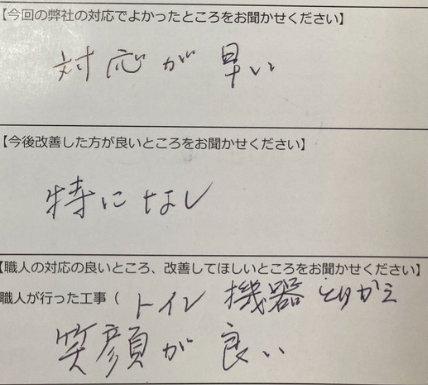 【今回の弊社の対応でよかったところをお聞かせください】
対応が早い
【今後改善した方が良いところをお聞かせください】
特になし
【職人の対応の良いところ、改善してほしいところをお聞かせください】
職人が行った工事（トイレ機器とりかえ
笑顔が良い